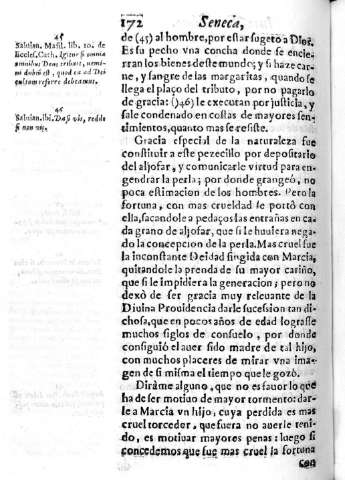 172 Seneca,
45
Salvian. Massil. lib. 10. de
Eccles. Cath. Igitur si omnia
omnibus Deus tribuit, nemini
dubiũ est, quod ea ad Dei
cultum referre debeamus.
46
Salvian. ibi. Dasi vis, redde
si non vis.
de (45) al hombre, por estar sugeto a Dios.
Es su pecho vna concha donde se encierran
los bienes deste mundo; y si haze carne,
y sangre de las margaritas, quando se
llega el plaço del tributo, por no pagarlo
de gracia: (46) le executan por justicia, y
sale condenado en costas de mayores sentimientos,
quanto mas se resiste.
Gracia especial de la naturaleza fue
constituir a este pezecillo por depositario
del aljofar, y comunicarle virtud para engendrar
la perla; por donde grangeò, no
poca estimacion de los hombres. Pero la
fortuna, con mas crueldad se portò con
ella, sacandole a pedaços las entrañas en cada
grano de aljofar, que si le huuiera negado
la concepcion de la perla. Mas cruel fue
la inconstante Deidad fingida con Marcia,
quitandole la prenda de su mayor cariño,
que si le impidiera la generacion; pero no
dexò de ser gracia muy releuante de la
Diuina Prouidencia darle sucession tan dichosa,
que en pocos años de edad lograsse
muchos siglos de consuelo, por donde
consiguiò el auer sido madre de tal hijo,
con muchos placeres de mirar vna imagen
de si misma el tiempo que le gozò.
Dirame alguno, que no es fauor lo que
ha de ser motiuo de mayor tormento: darle
a Marcia vn hijo, cuya perdida es mas
cruel torcedor, que fuera no auerle tenido,
es motiuar mayores penas: luego si
concedemos que fue mas cruel la fortuna
con